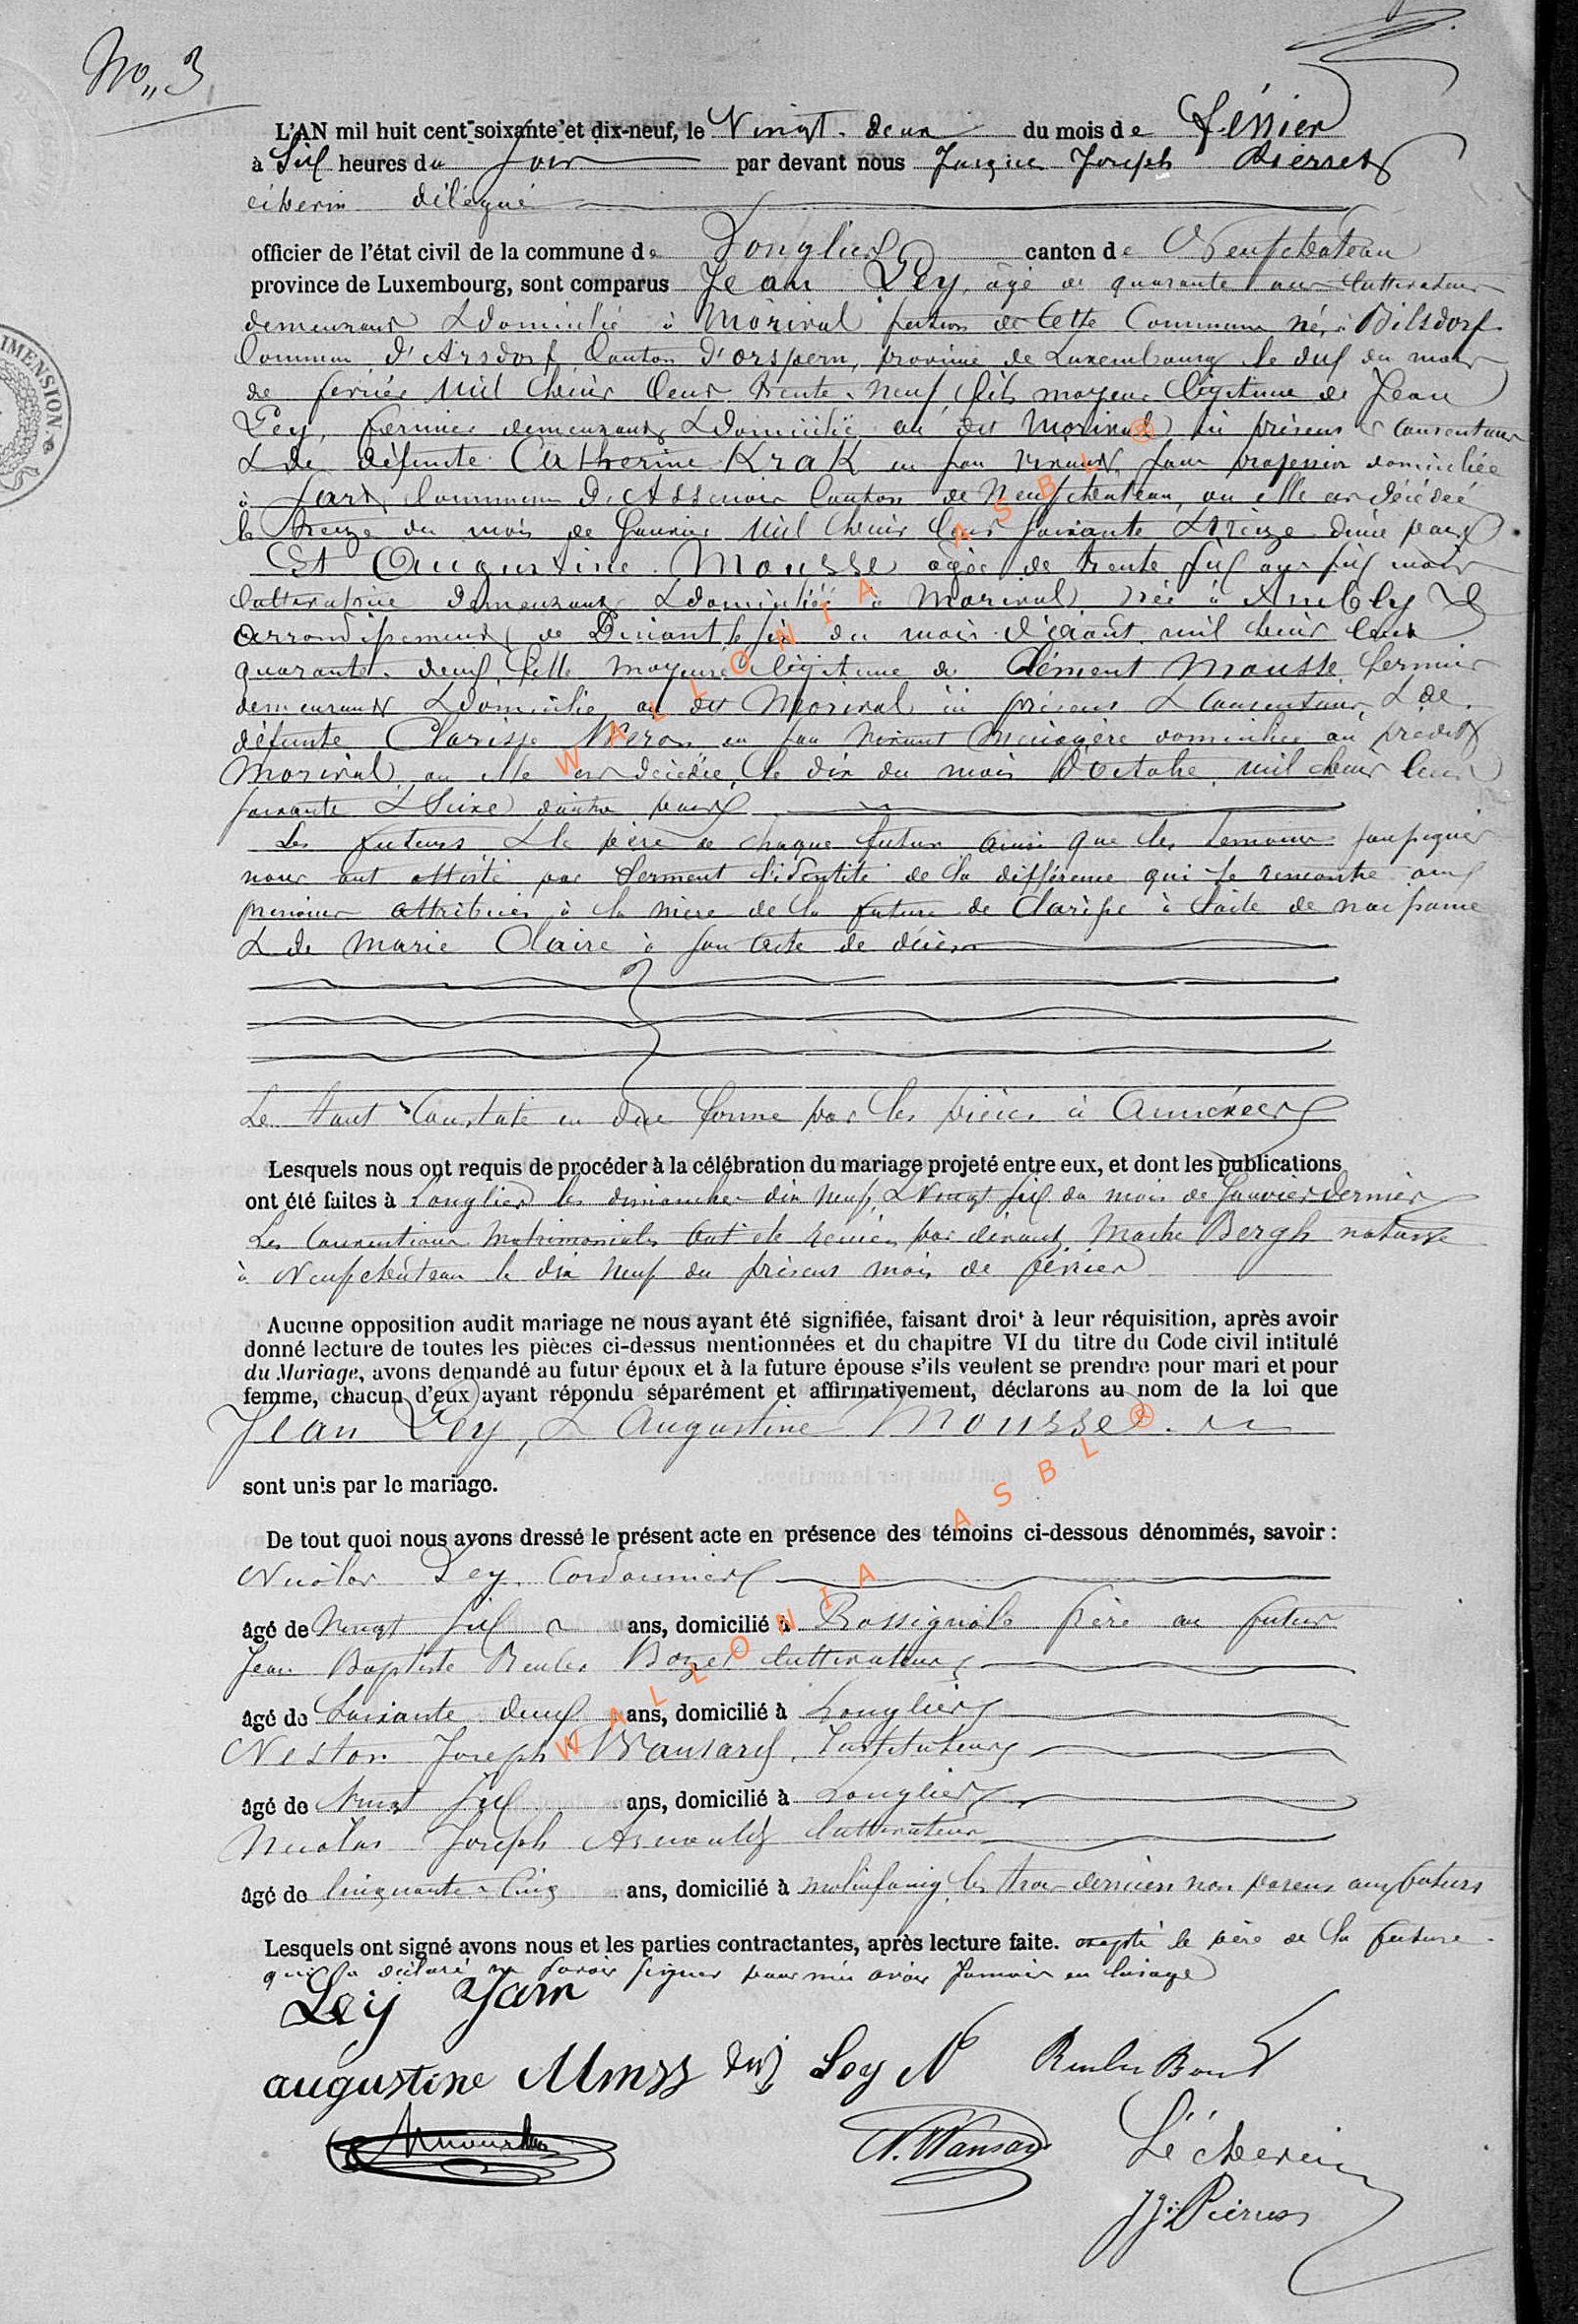 No 3
L'AN mil huit cent soixante et dix-neuf, le Vingt deux du mois de février
à six heures du soir par devant nous Jacques Joseph Pierret
échevin délégué
officier de l'état civil de la commune de Longlier canton de Neufchateau
province de Luxembourg, sont comparus Jean Ley, âgé de quarante ans Cultivateur
demeurant & domicilié à Morival section de Cette Commune né à Bilsdorf
Commune d'Arsdorf Canton d'Ospern, province de Luxembourg le dix du mois
de février Mil huit Cent trente neuf fils majeur légitime de Jean
Ley, fermier demeurant & domicilié au dit Morival ici présent & Consentant
& de défunte Catherine Krak en son vivant sans profession domiciliée
à fart Commune D'Assenois Canton de Neufchateau, ou elle est décédée
le treize du mois de Janvier Mil huit Cent soixante & treize d'une part
Et Augustine Mousse agée de trente six ans six mois
Cultivatrice demeurant & domiciliée à Morival née à Ambly
arrondissement de Dinant le six du mois d'août mil huit Cent
quarante deux fille majeure légitime de Clément Mousse fermier
demeurant & domicilié au dit Morival ici présent & Consentant & de
défunte Clarisse en son vivant Ménagère domiciliée au prédit
Morival, ou elle est décédée le dix du mois D'octobre mil huit Cent
soixante & Seize d'autre part
Les futurs & le père de chaque futur ainsi que les temoins soussignés
nous ont attesté par Serment l'identité de la différence qui se rencontre aux
prénoms attribués à la mère de la future de Clarisse à l'acte de naissance
& de Marie Claire à son acte de décès
Le tout Constaté en due forme par les pièces ci Annexées
Lesquels nous ont requis de procéder à la célébration du mariage projeté entre eux, et dont les publications
ont été faites à Longlier les dimanches dix neuf & Vingt six du mois de Janvier dernier
Les Conventions Matrimoniales Ont été reçues par devant Maitre Bergh notaire
à Neufchateau le dix neuf du présent mois de février
Aucune opposition audit mariage ne nous ayant été signifiée, faisant droit à leur réquisition, après avoir
donné lecture de toutes les pièces ci-dessus mentionnées et du chapitre VI du titre du Code civil intitulé
du Mariage, avons demandé au futur époux et à la future épouse s'ils veulent se prendre pour mari et pour
femme, chacun d'eux ayant répondu séparément et affirmativement, déclarons au nom de la loi que
Jean Ley, & Augustine Mousse
sont unis par le mariage.
De tout quoi nous avons dressé le présent acte en présence des témoins ci-dessous dénommés, savoir :
Nicolas Ley, Cordonnier
âgé de Vingt six ans, domicilié à Rossignole frère au futur
Jean Baptiste Reuler Bozet Cultivateur
âgé de Soixante deux ans, domicilié à Longlier
Nestor Joseph Wansard, Instituteur
âgé de Vingt six ans, domicilié à Longlier
Nicolas Joseph Arnould Cultivateur
âgé de Cinquante Cinq ans, domicilié à molinfaing, les trois derniers non parens aux futurs
Lesquels ont signé avons nous et les parties contractantes, après lecture faite. excepté le père de la future
qui a déclaré ne savoir signer pour n'en avoir Jamais eu l'usage
Ley
augustine Ley N
N. Wansard L'échevin
JJ. Pierret
WALLONIA ASBL®
WALLONIA ASBL®